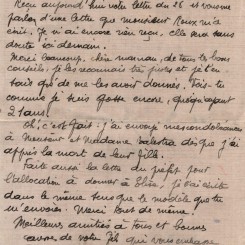 Reçu aujourd'hui votre lettre du 28 et vous me
parlez d'une lettre que monsieur Roux m'a
écrit. Je n'ai encore rien reçu, elle sera sans
doute ici demain.
Merci beaucoup, chère maman, de tous tes bons
conseils, je les reconnais très justes et je t'en
sais gré de me les avoir donnés. Vois-tu
comme je suis gosse encore, quoique ayant
21 ans.
Oh! c'est fait. j'ai envoyé mes condoléances
à Monsieur et Madame dès que j'ai
appris la mort de leur fils.
Faite aussi la lettre du préfet pour
l'allocation à donner à Elise, je l'ai écrite
dans le même sens que le modèle que tu
m'envois. Merci tout de même.
Meilleures amitiés à tous et bonnes
de votre fils qui vous embrasse